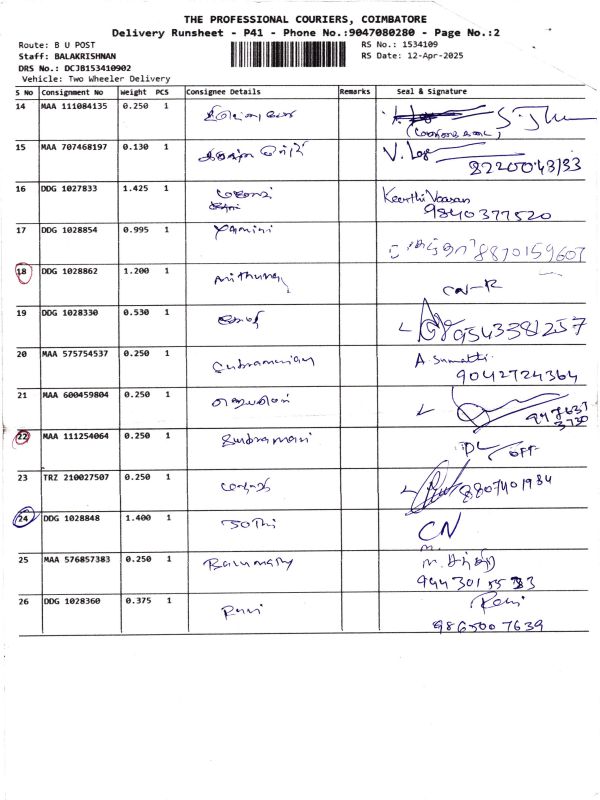 THE PROFESSIONAL COURIERS, COIMBATORE
Delivery Runsheet - P41 - Phone No.:9047080280 - Page No.:2
Route: B U POST
RS No.: 1534109
Staff: BALAKRISHNAN
RS Date: 12-Apr-2025
DRS No.: DCJB153410902
Vehicle: Two Wheeler Delivery
S No Consignment No Weight PCS Consignee Details Remarks Seal & Signature
14 MAA 111084135 0.250 1
15 MAA 707468197 0.130 1 V. Loge
8220043133
16 DDG 1027833 1.425 1 Keerthi Vaasan
9840377520
17 DDG 1028854 0.995 1 Yamini
8870159607
18 DDG 1028862 1.200 1 Mithunaj CN-R
19 DDG 1028330 0.530 1 9543381257
20 MAA 575754537 0.250 1 Subramanian A. Sumathi
9042724364
21 MAA 600459804 0.250 1 947637
3730
22 MAA 111254064 0.250 1 Subramani DL OFF
23 TRZ 210027507 0.250 1 8807401984
24 DDG 1028848 1.400 1 CN
25 MAA 576857383 0.250 1 Balumathy
9443015533
26 DDG 1028360 0.375 1 Ravi Ravi
9865007639